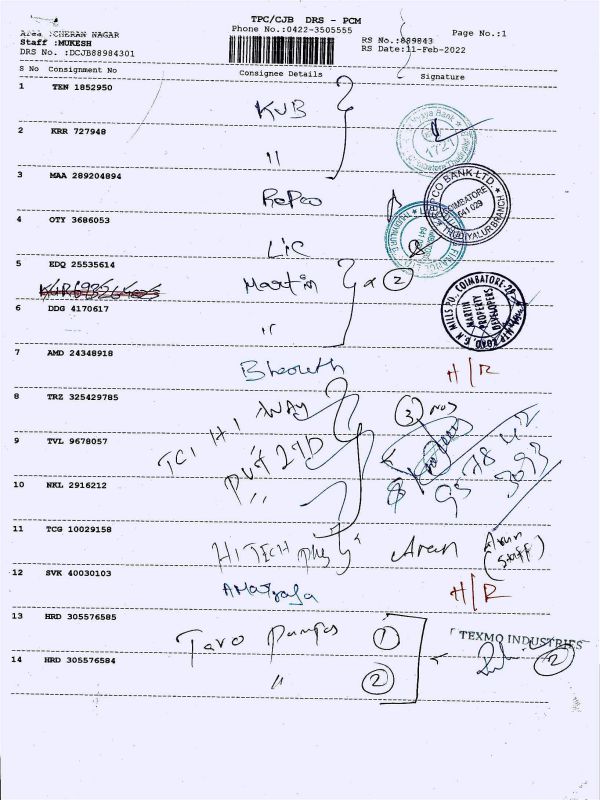 TPC/CJB DRS - PCM
Area :CHERAN NAGAR Phone No.:0422-3505555 Page No.:1
Staff :MUKESH RS No.:889843
DRS No. :DCJB88984301 RS Date:11-Feb-2022
S No Consignment No Consignee Details Signature
1 TEN 1852950 KVB
2 KRR 727948 "
3 MAA 289204894 Repco
4 OTY 3686053 LIC
5 EDQ 25535614 Martin 2
6 DDG 4170617 "
7 AMD 24348918 Bharath H/R
8 TRZ 325429785 3 nos
9 TVL 9678057 TCI HI WAY PVT LTD
10 NKL 2916212 "
11 TCG 10029158 HITECH Arun Arun (Staff)
12 SVK 40030103 H/R
13 HRD 305576585 Taro Pumps 1 TEXMO INDUSTRIES
14 HRD 305576584 " 2 2
Vijaya Bank
REPCO BANK LTD.
COIMBATORE
641 029
THUDIYALUR BRANCH
G.N MILLS PO, COIMBATORE-29
MARTIN
PROPERTY
DEVELOPERS
MTP ROAD